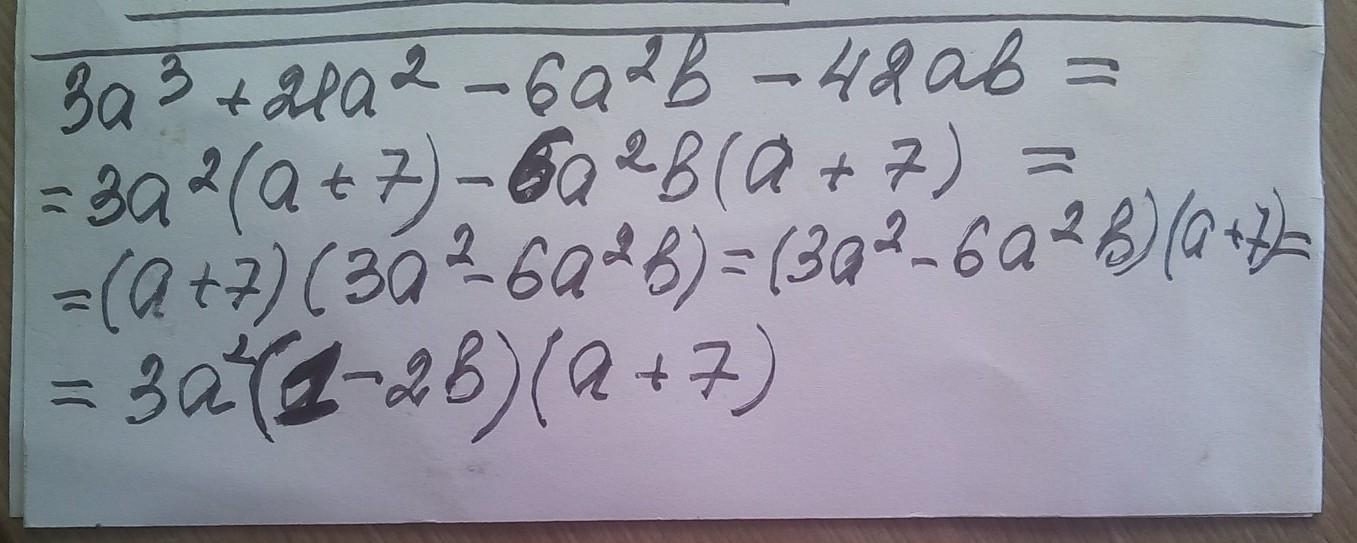 3a³ + 21a² - 6a²b - 42ab =
= 3a²(a + 7) - 6a²b(a + 7) =
= (a + 7)(3a² - 6a²b) = (3a² - 6a²b)(a + 7) =
= 3a²(1 - 2b)(a + 7)